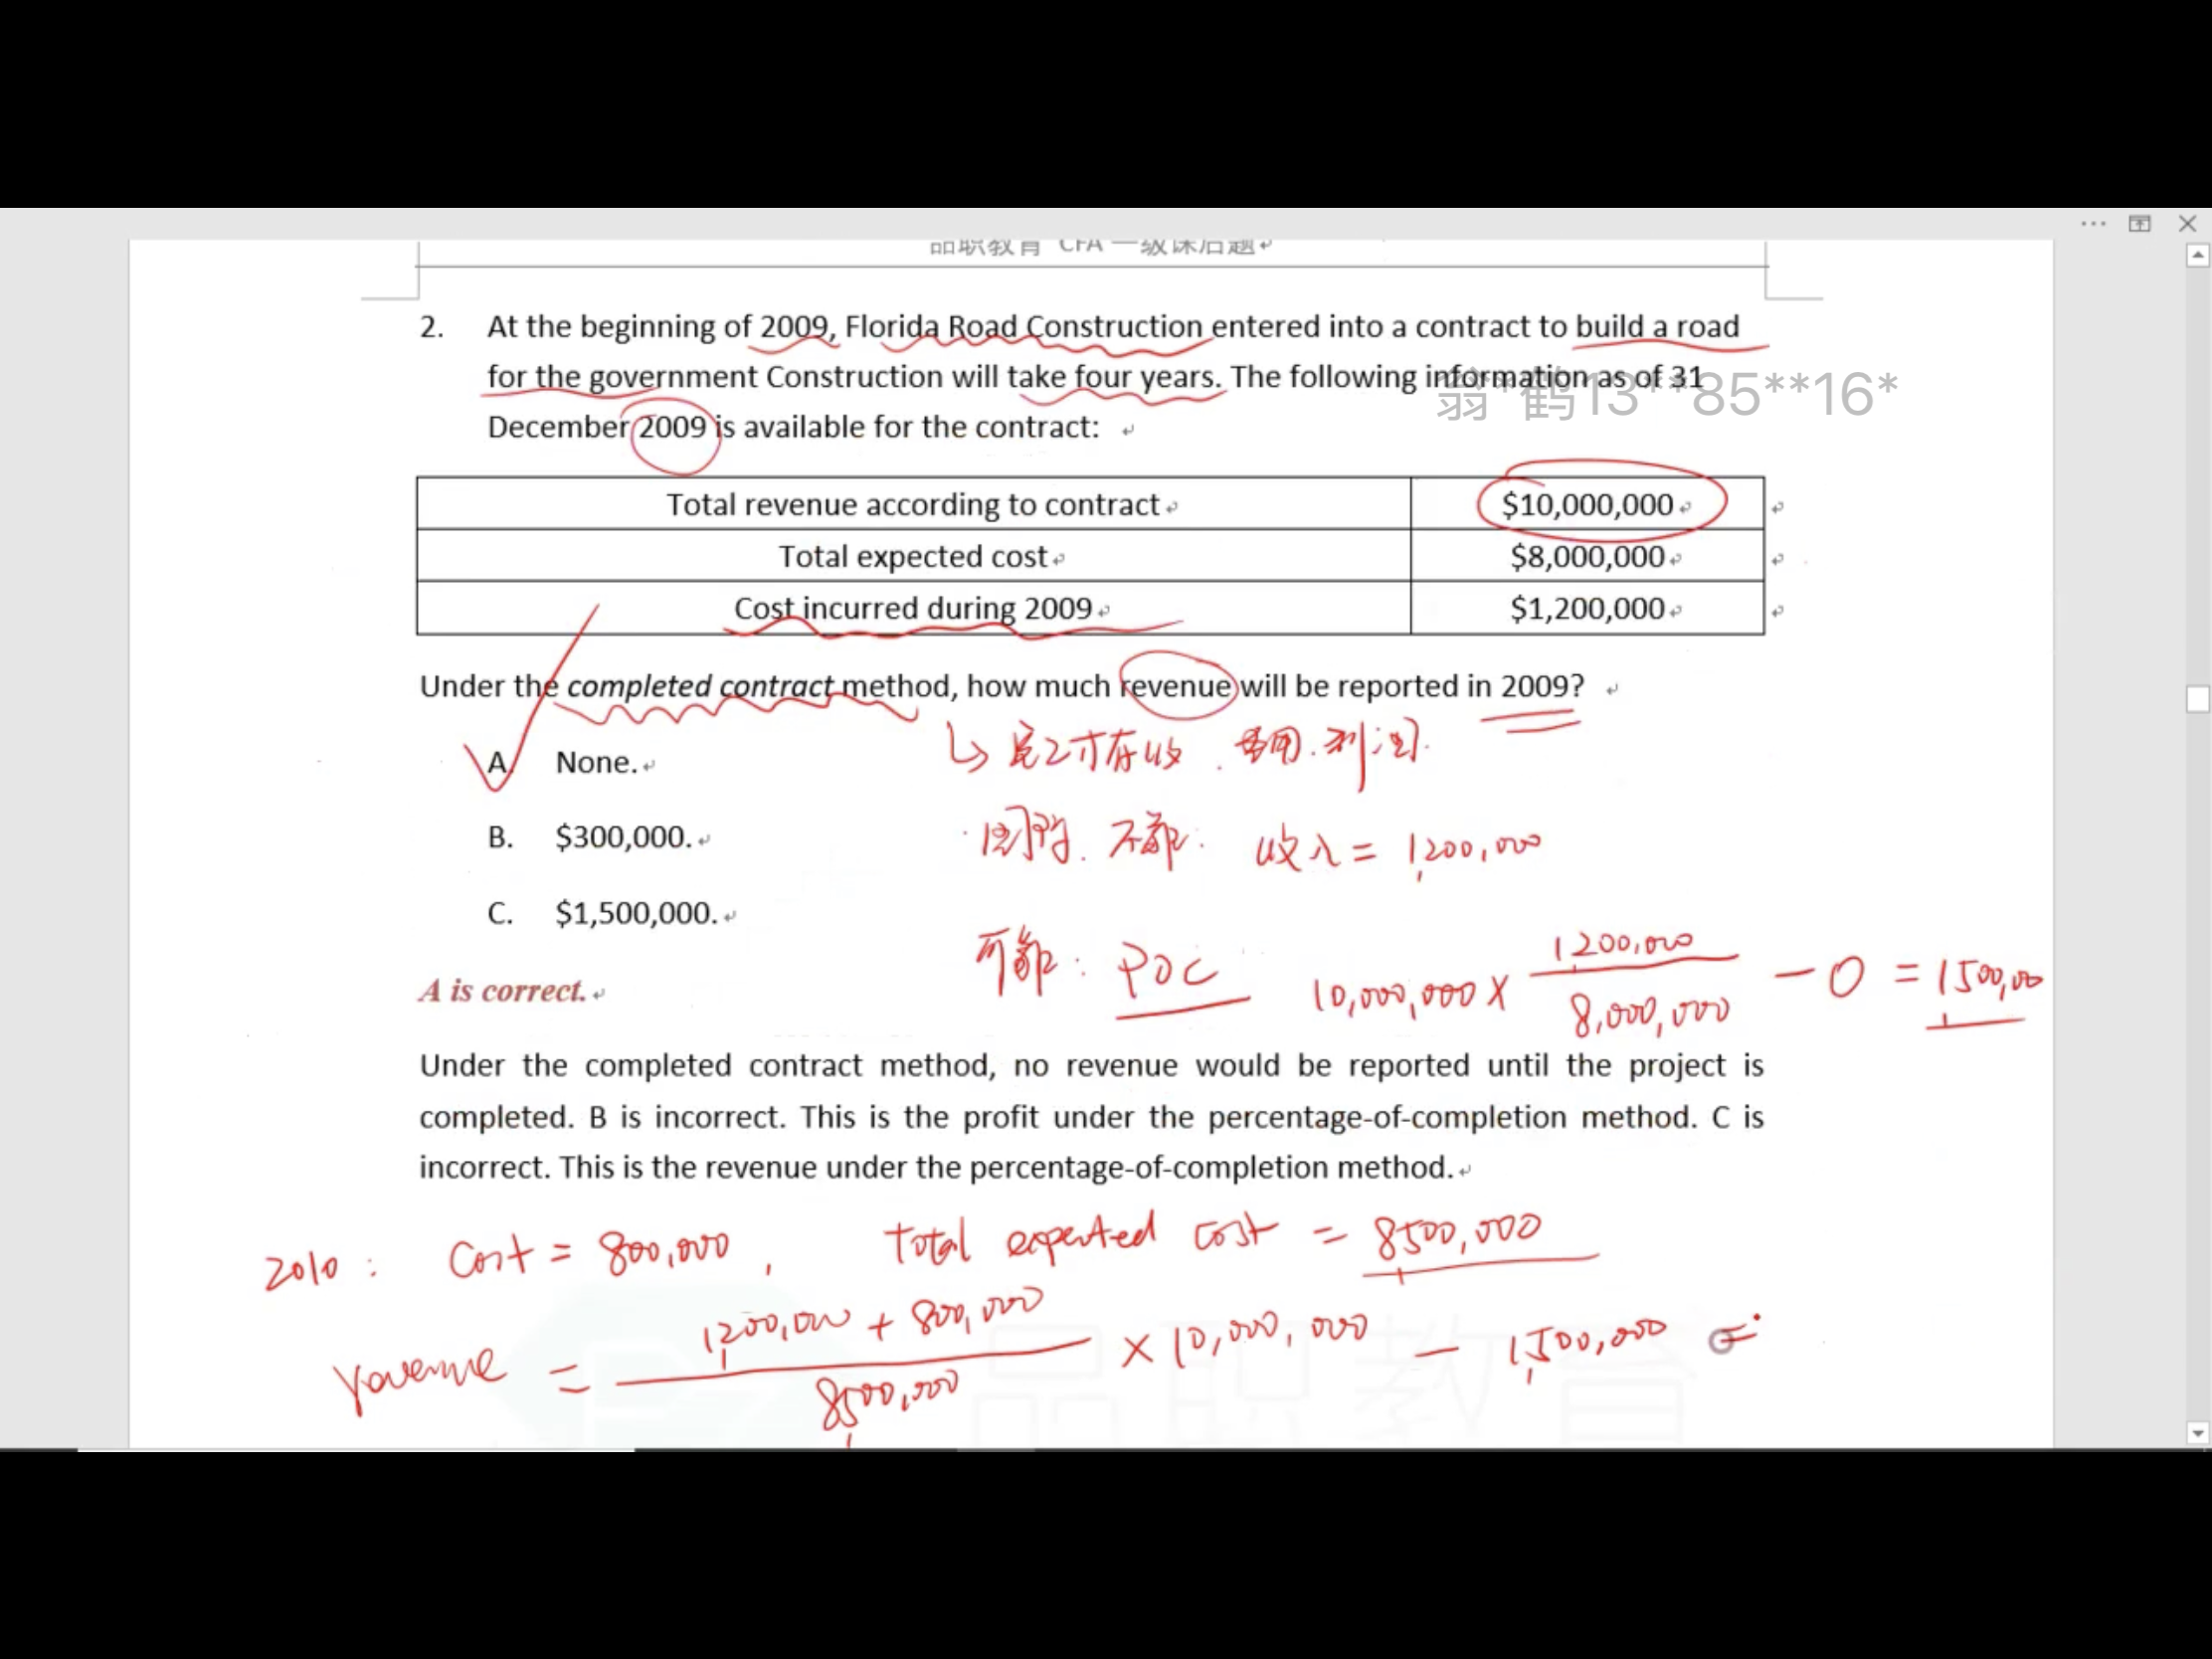 品职教育 CFA 一级课后题
2. At the beginning of 2009, Florida Road Construction entered into a contract to build a road
for the government Construction will take four years. The following information as of 31
翁*鹤13**85**16*
December 2009 is available for the contract:
Total revenue according to contract $10,000,000
Total expected cost $8,000,000
Cost incurred during 2009 $1,200,000
Under the completed contract method, how much revenue will be reported in 2009?
↳ 完工才有收.费用.利润.
A. None.
B. $300,000.
·国际. 不能: 收入 = 1,200,000
C. $1,500,000.
可能: POC 10,000,000 × 1,200,000 / 8,000,000 - 0 = 1,500,00
A is correct.
Under the completed contract method, no revenue would be reported until the project is
completed. B is incorrect. This is the profit under the percentage-of-completion method. C is
incorrect. This is the revenue under the percentage-of-completion method.
2010: Cost = 800,000, total expected cost = 8,500,000
revenue = 1,200,000 + 800,000 / 8,500,000 × 10,000,000 - 1,500,000 =
品职教育